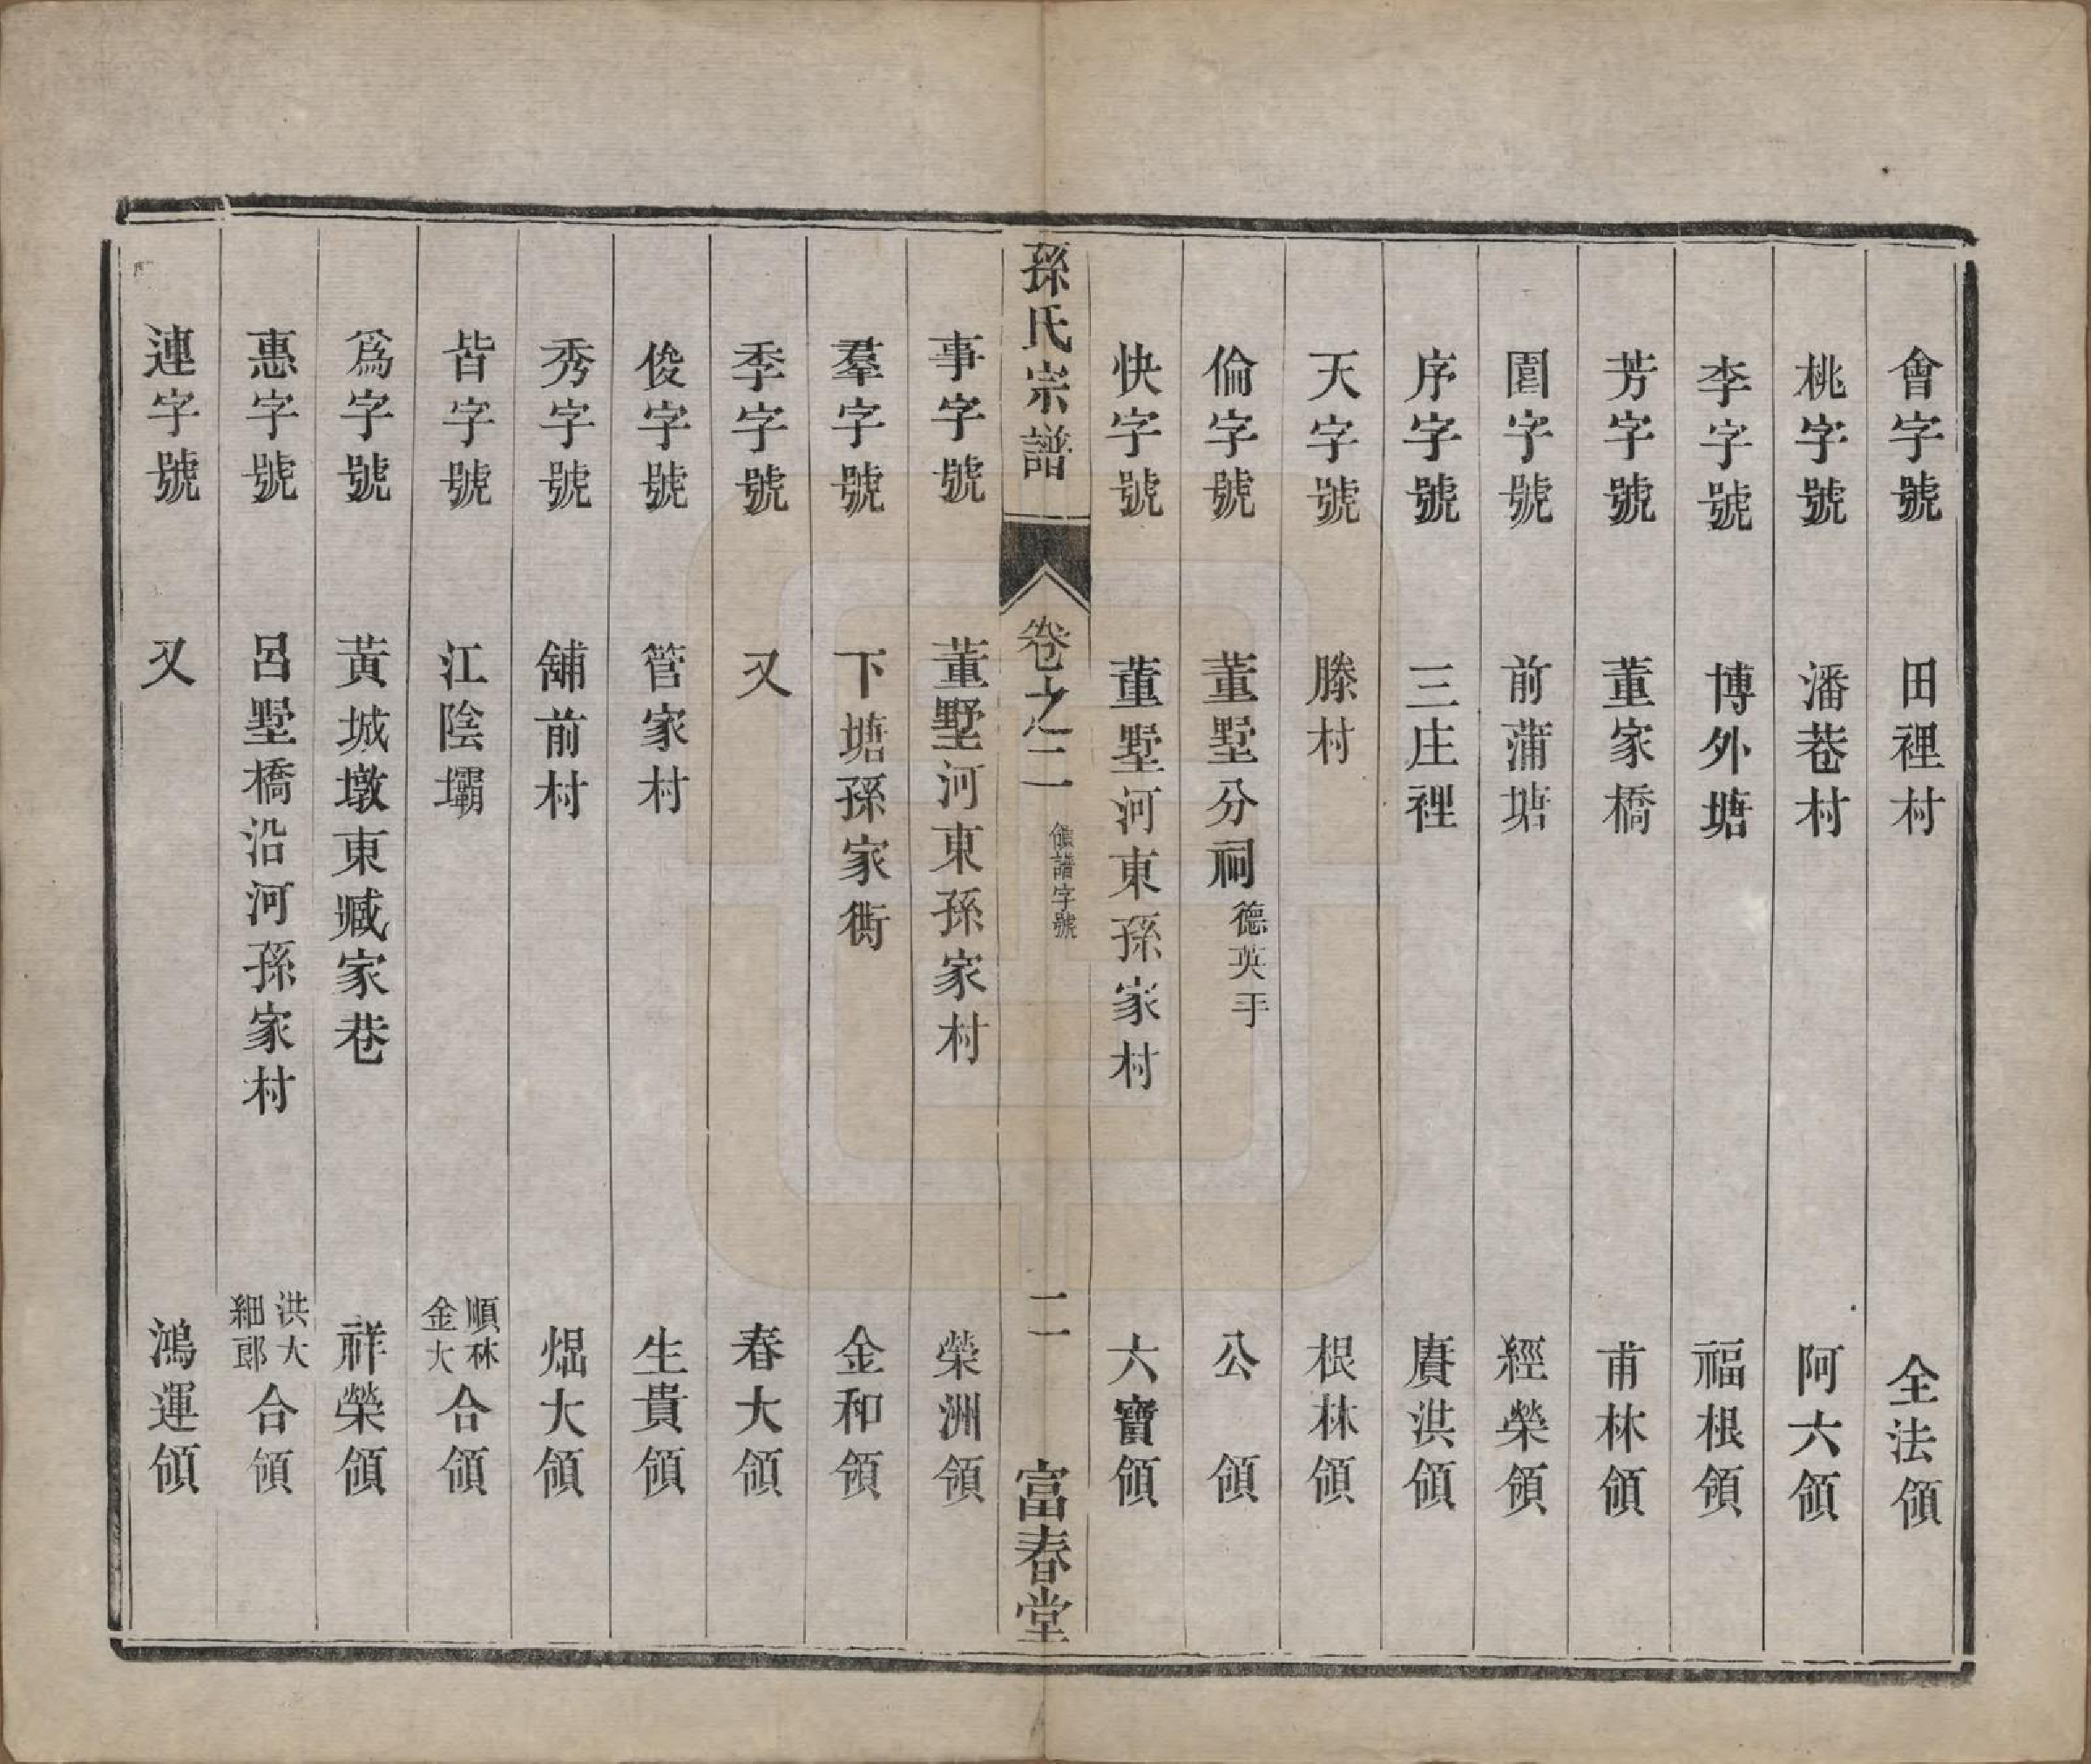 會字號 田裡村 全法領
桃字號 潘巷村 阿六領
李字號 博外塘 福根領
芳字號 董家橋 甫林領
園字號 前蒲塘 經榮領
序字號 三庄裡 賡洪領
天字號 滕村 根林領
倫字號 董墅分祠德英手 公領
快字號 董墅河東孫家村 六寶領
孫氏宗譜 卷之二 領譜字號 二 富春堂
事字號 董墅河東孫家村 榮洲領
羣字號 下塘孫家衖 金和領
季字號 又 春大領
俊字號 管家村 生貴領
秀字號 舖前村 焜大領
皆字號 江陰壩 順林金大合領
爲字號 黃城墩東臧家巷 祥榮領
惠字號 呂墅橋沿河孫家村 洪大細郎合領
連字號 又 鴻運領